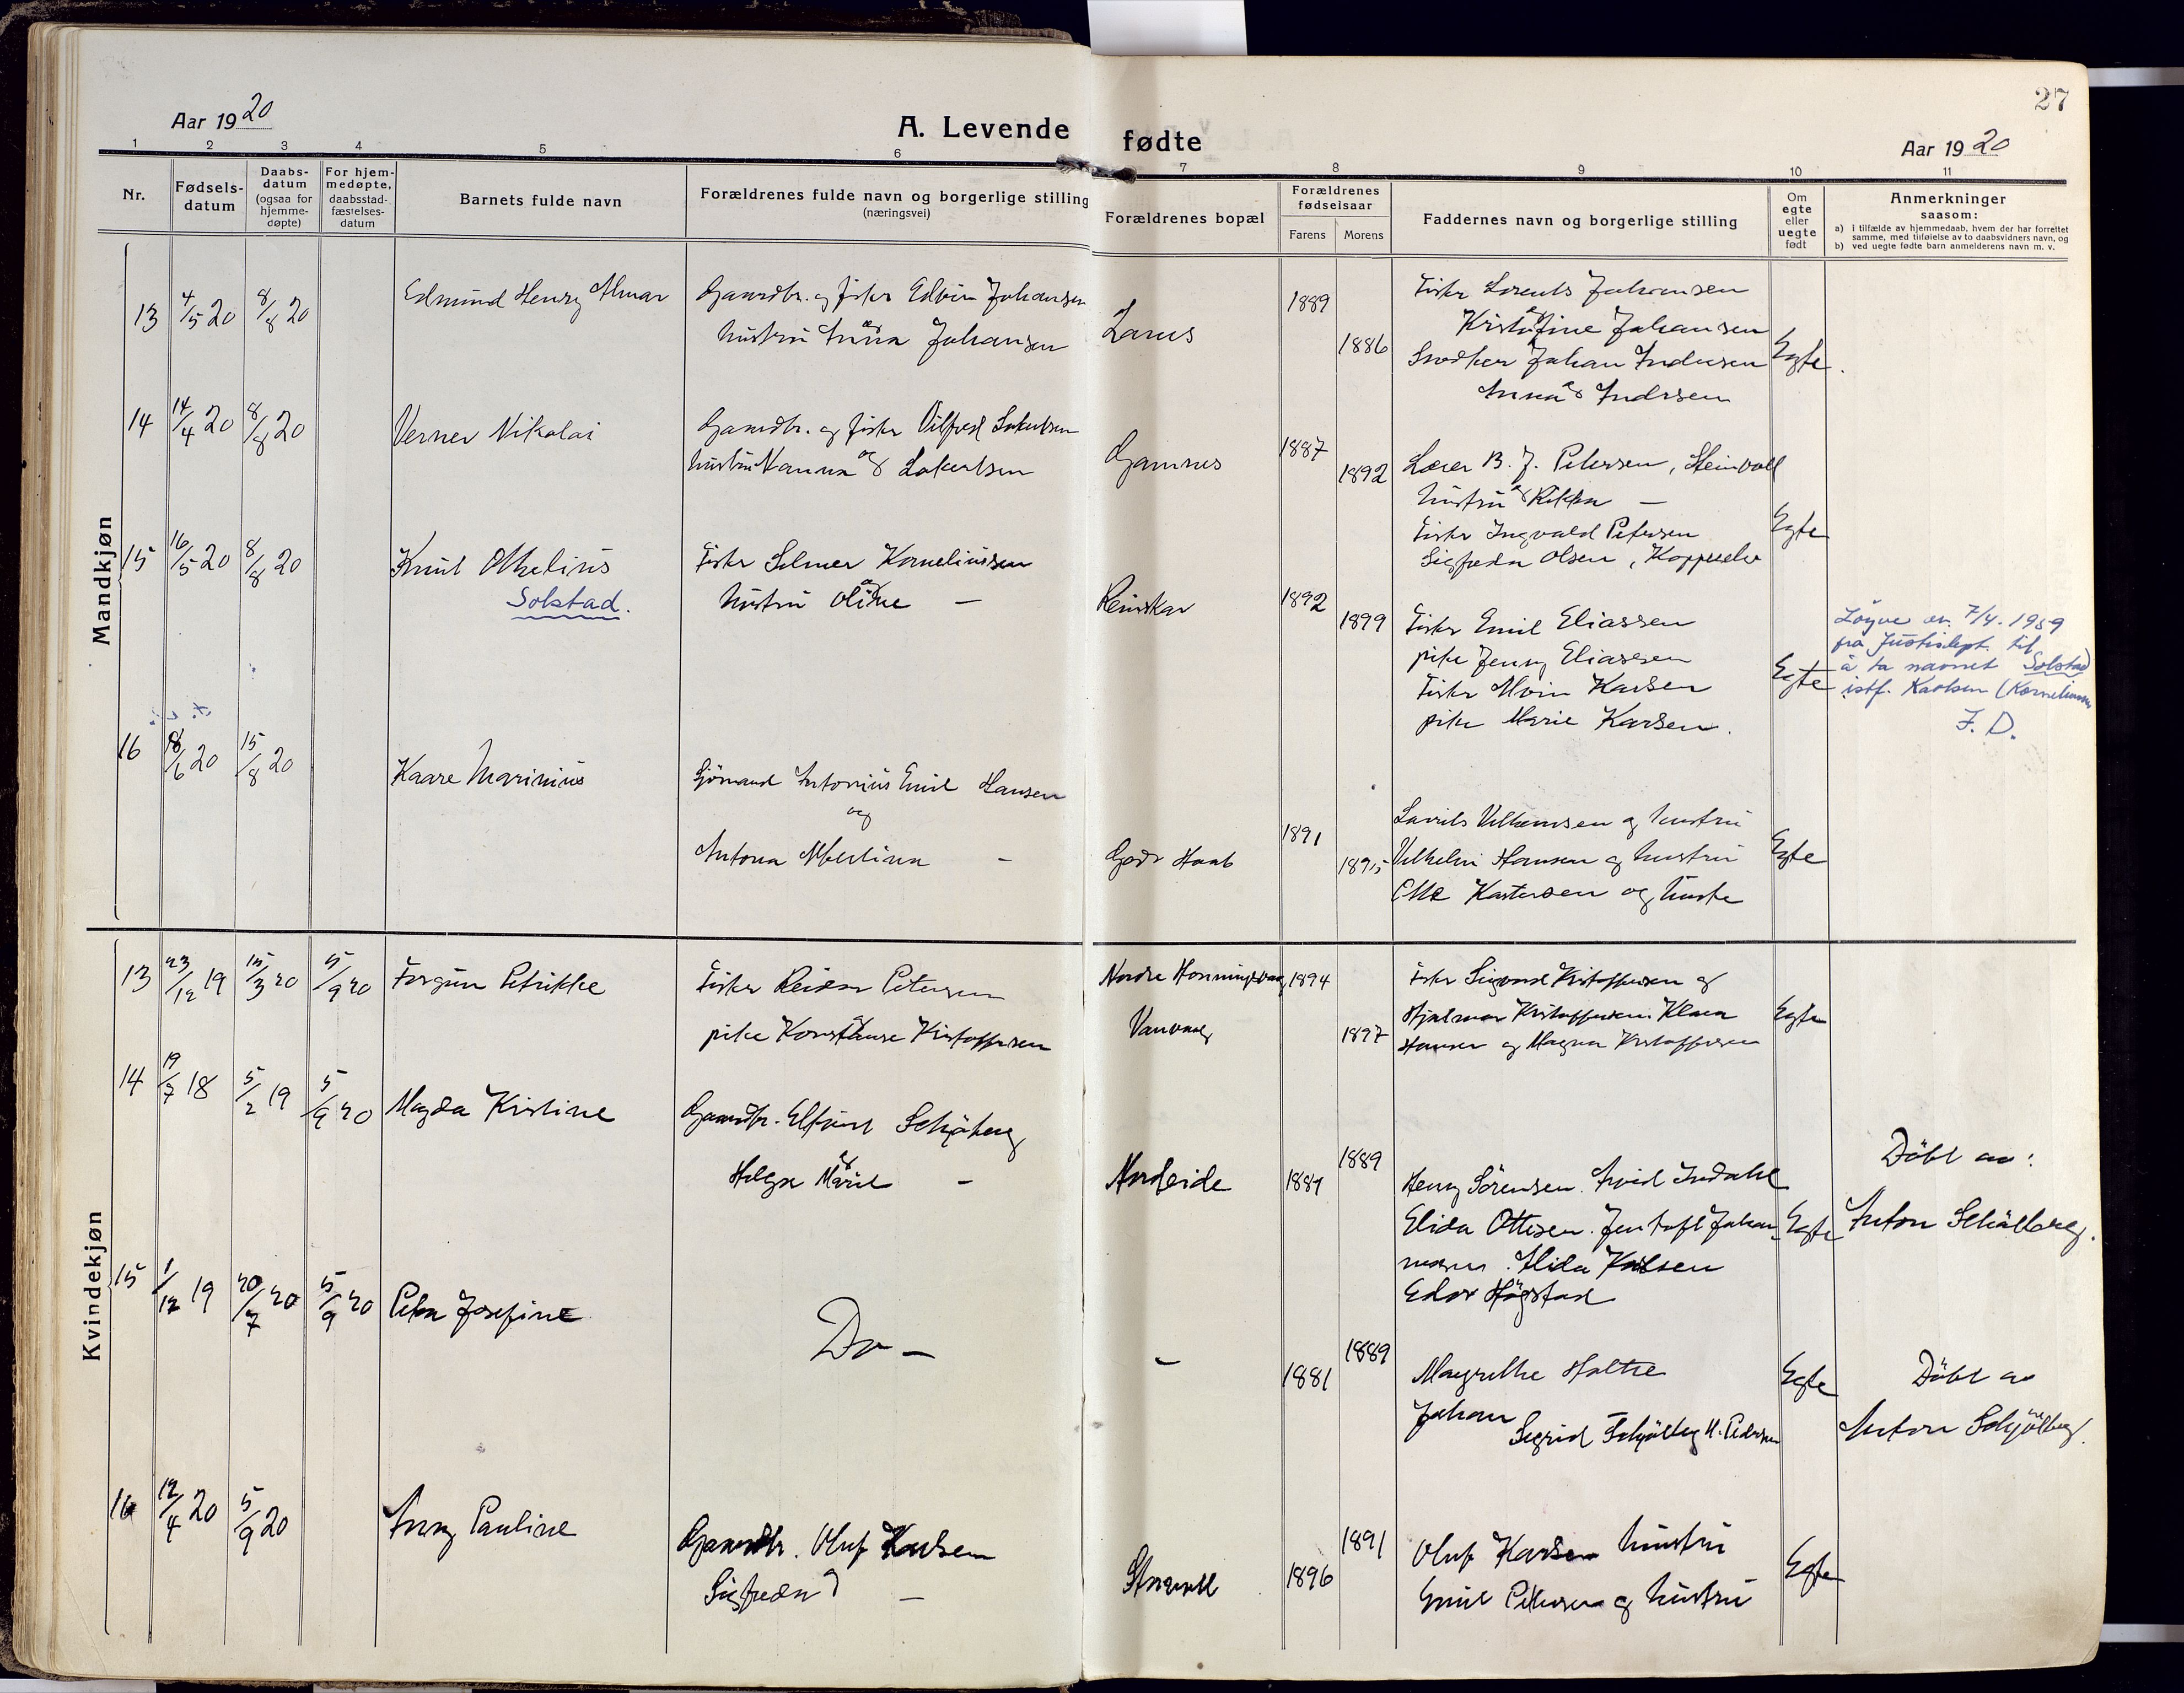 27
Aar 1920
A. Levende fødte
Aar 1920
1 2 3 4 5 6 7 8 9 10 11
Nr.
Fødsels-
datum
Daabs-
datum
(ogsaa for
hjemme-
døpte)
For hjem-
medøpte,
daabsstad-
fæstelses-
datum
Barnets fulde navn
Forældrenes fulde navn og borgerlige stilling
(næringsvei)
Forældrenes bopæl
Forældrenes
fødselsaar
Farens Morens
Faddernes navn og borgerlige stilling
Om
egte
eller
uegte
født
Anmerkninger
saasom:
a) i tilfælde av hjemmedaab, hvem der har forrettet
samme, med tilføielse av to daabsvidners navn, og
b) ved uegte fødte barn anmelderens navn m. v.
Mandkjøn
13 4/5 20 8/8 20 Edmund Henry Almar
Gaardbr. og fisker Edvin Johansen
hustru Anna Johansen
1889
1886
Fisker Lorents Johansen
Kristofine Johansen
Johan Andersen
Anna Andersen
Egte.
14 14/4 20 8/8 20 Verner Nikolai
Gaardbr. og fisker Vilfred
hustru Hanna og
Gamnes
1887
1892
Lærer B. J. Petersen, Steinvoll
hustru og Rikka —
Fisker Ingvald Petersen
Sigfreda Olsen,
Egte
15 16/5 20 8/8 20 Knut Othelius
Solstad.
Fisker Selmer Korneliussen
hustru og Oline —
Reinskar
1892
1899
Fisker Emil Eliassen
pike Jenny Eliassen
Fisker Alvin Karlsen
pike Marie Karlsen.
Egte
Løyve av 7/4. 1959
fra Justisdept. til
å ta navnet Solstad
istf. Karlsen (Korneliussen
F. D.
16 18/6 20 15/8 20 Kaare Marinius
Sjømand Antonius Emil Hansen
og
Antona Albertina —
Godt Haab
1891
1895
Laurits Vilhelmsen og hustru
Vilhelm Hansen og hustru
Otte og hustru
Egte
Kvindekjøn
13 23/12 19 15/3 20 5/9 20 Torgun Petrikke
Fisker Reidar Petersen
pike Konstanse Kristoffersen
Nordre Honningsvaag
Vanvaag
1894
1897
Fisker Sigvard Kristoffersen og
Hjalmar Kristoffersen. Klara
Hansen og Magna Kristoffersen
Egte
14 19/7 18 5/2 19 5/9 20 Magda Kristine
Gaardbr.
Helga Marie —
Nordeide
1889
1881
Henry Sörensen. Arvid Indahl
Elida Ottesen. Jentoft Johan-
nesen. Alida Karlsen
Edor Högstad
Egte
Döbt av:
Anton Schjölberg.
15 1/12 19 20/7 20 5/9 20 Petra Josefine
Do —
—
1889
1881
Margrethe Holthe
Johan
Sigrid Schjölberg H. Pedersen
Egte
Döbt av
Anton Schjölberg.
16 12/4 20 5/9 20 Anny Pauline
Gaardbr. Oluf Karlsen
Sigfreda —
Storvoll
1891
1896
Oluf Karlsen hustru
Emil Petersen og hustru
Egte